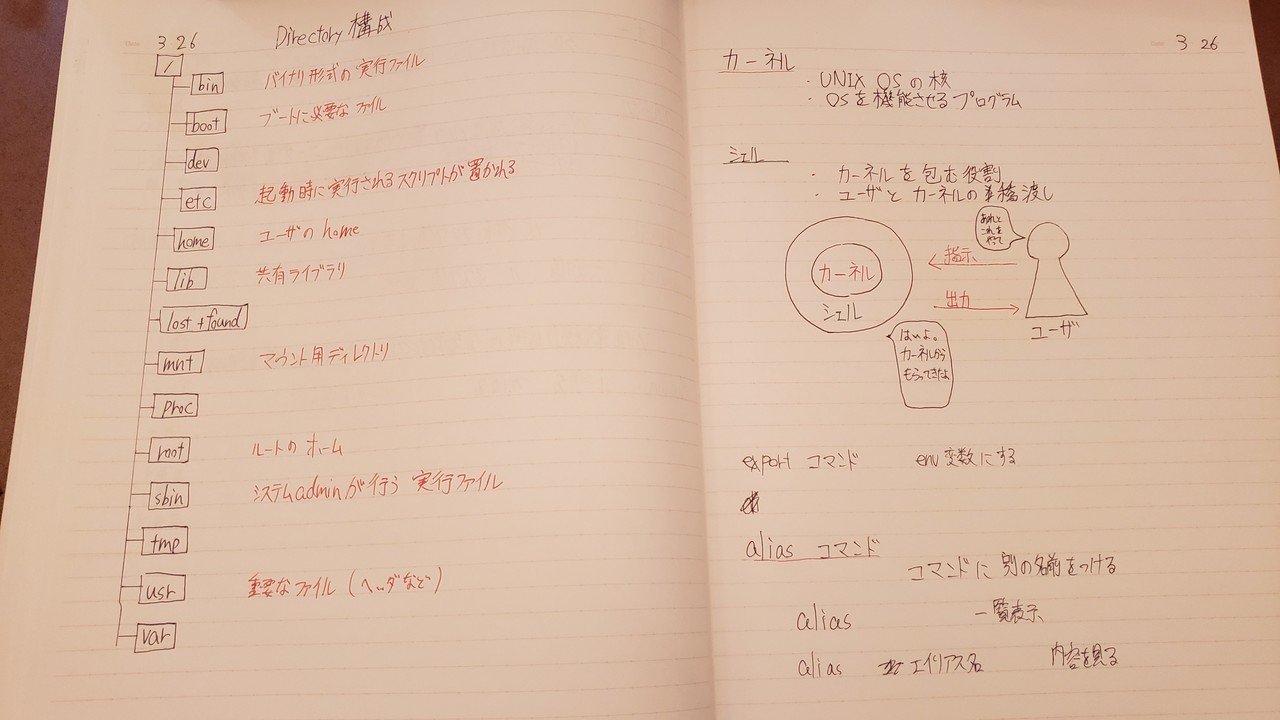 Date 3 26
Directory 構成
/
bin バイナリ形式の実行ファイル
boot ブートに必要なファイル
dev
etc 起動時に実行されるスクリプトが置かれる
home ユーザの home
lib 共有ライブラリ
lost+found
mnt マウント用ディレクトリ
proc
root ルートの ホーム
sbin システムadminが行う 実行ファイル
tmp
usr 重要なファイル (ヘッダなど)
var
Date 3 26
カーネル
・UNIX OS の核
・OSを機能させるプログラム
シェル
・カーネルを包む役割
・ユーザと カーネルの 橋渡し
あれと
これを
やって
指示
カーネル
シェル
出力
ユーザ
はいよ。
カーネルから
もらってきたよ
export コマンド env 変数にする
alias コマンド
コマンドに 別の名前をつける
alias 一覧表示
alias エイリアス名 内容を見る